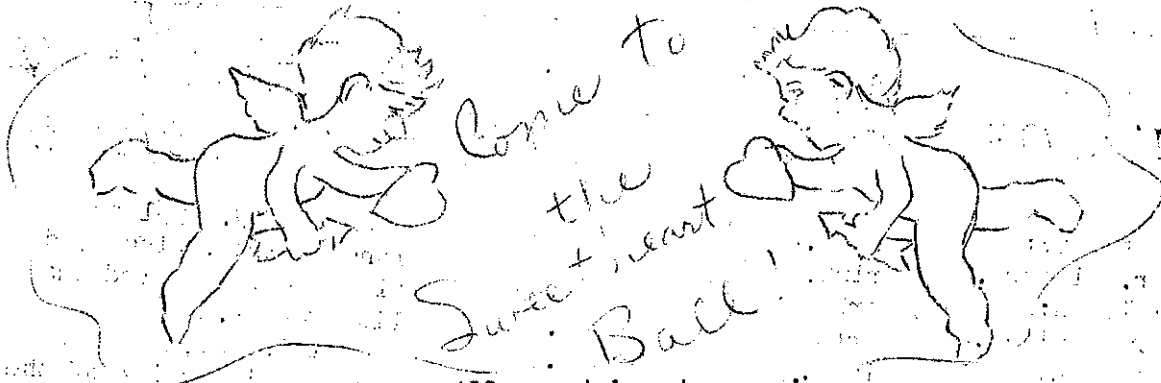 Come to
the
Sweetheart
Ball!